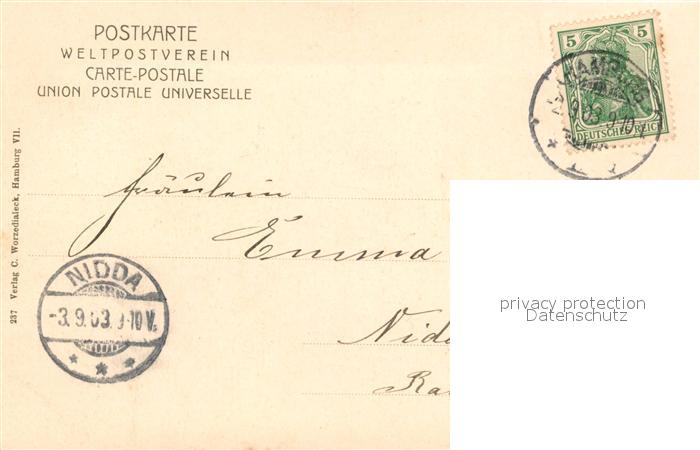 POSTKARTE
WELTPOSTVEREIN
CARTE-POSTALE
UNION POSTALE UNIVERSELLE
5 5
DEUTSCHES REICH
HAMBURG
.9.03. 9-10
237 Verlag C. Worzedialeck, Hamburg VII.
Fräulein
Emma
NIDDA
-3.9.03.9-10V.
Nid
privacy protection
Datenschutz